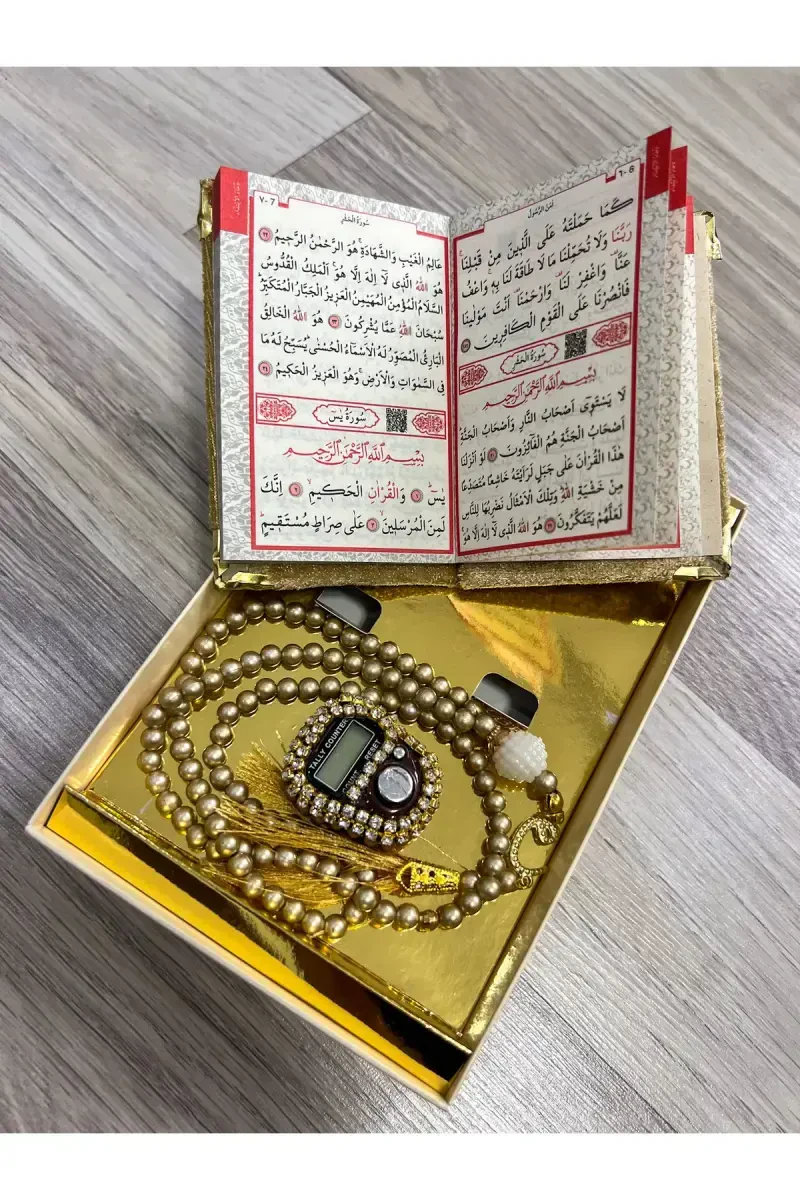 ٦-6
اٰمَنَ الرَّسُولُ
كَمَا حَمَلْتَهُ عَلَى الَّذِينَ مِنْ قَبْلِنَا
رَبَّنَا وَلَا تُحَمِّلْنَا مَا لَا طَاقَةَ لَنَا بِهِ وَاعْفُ
عَنَّا وَاغْفِرْ لَنَا وَارْحَمْنَا اَنْتَ مَوْلٰينَا
فَانْصُرْنَا عَلَى الْقَوْمِ الْكَافِرِينَ
سُورَةُ الْحَشْرِ
بِسْمِ اللّٰهِ الرَّحْمٰنِ الرَّحِيمِ
لَا يَسْتَوِى اَصْحَابُ النَّارِ وَاَصْحَابُ الْجَنَّةِ
اَصْحَابُ الْجَنَّةِ هُمُ الْفَٓائِزُونَ ٢٠ لَوْ اَنْزَلْنَا
هٰذَا الْقُرْاٰنَ عَلٰى جَبَلٍ لَرَاَيْتَهُ خَاشِعًا مُتَصَدِّعًا
مِنْ خَشْيَةِ اللّٰهِ وَتِلْكَ الْاَمْثَالُ نَضْرِبُهَا لِلنَّاسِ
لَعَلَّهُمْ يَتَفَكَّرُونَ ٢١ هُوَ اللّٰهُ الَّذِى لَٓا اِلٰهَ اِلَّا هُوَ
٧-7
سُورَةُ الْحَشْرِ
عَالِمُ الْغَيْبِ وَالشَّهَادَةِ هُوَ الرَّحْمٰنُ الرَّحِيمُ ٢٢
هُوَ اللّٰهُ الَّذِى لَٓا اِلٰهَ اِلَّا هُوَ اَلْمَلِكُ الْقُدُّوسُ
السَّلَامُ الْمُؤْمِنُ الْمُهَيْمِنُ الْعَزِيزُ الْجَبَّارُ الْمُتَكَبِّرُ
سُبْحَانَ اللّٰهِ عَمَّا يُشْرِكُونَ ٢٣ هُوَ اللّٰهُ الْخَالِقُ
الْبَارِئُ الْمُصَوِّرُ لَهُ الْاَسْمَٓاءُ الْحُسْنٰى يُسَبِّحُ لَهُ مَا
فِى السَّمٰوَاتِ وَالْاَرْضِ وَهُوَ الْعَزِيزُ الْحَكِيمُ ٢٤
سُورَةُ يٰسٓ
بِسْمِ اللّٰهِ الرَّحْمٰنِ الرَّحِيمِ
يٰسٓ ١ وَالْقُرْاٰنِ الْحَكِيمِ ٢ اِنَّكَ
لَمِنَ الْمُرْسَلِينَ ٣ عَلٰى صِرَاطٍ مُسْتَقِيمٍ
TALLY COUNTER
RESET